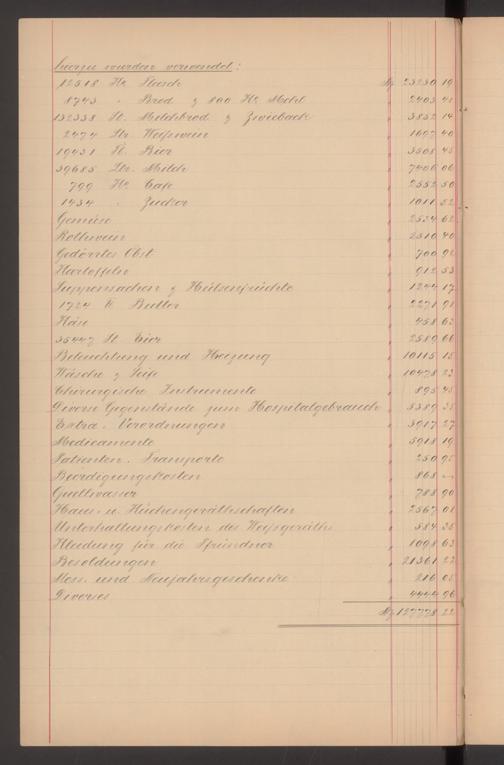 hierzu wurden verwendet:
12518 Ko. Fleisch M. 23230 19
1743 " Brod & 100 Ko. Mehl " 2403 41
132338 St. Milchbrod & Zwieback " 3852 14
2474 Ltr. Weißwein " 1697 40
19431 Fl. Bier " 3508 45
39685 Ltr. Milch " 7406 06
799 Ko. Cafe " 2552 50
1434 " Zucker " 1011 52
Gemüse " 2524 62
Rothwein " 2310 40
Gedörrtes Obst " 700 92
Kartoffeln " 912 53
Suppensachen & Hülsenfrüchte " 1244 17
1724 ℔ Butter " 2271 91
Käse " 458 63
35447 St. Eier " 2589 66
Beleuchtung und Heizung " 10115 15
Wäsche & Seife " 10478 23
Chirurgische Instrumente " 895 45
Diverse Gegenstände zum Hospitalgebrauch " 5389 35
Extra-Verordnungen " 3917 27
Medicamente " 5918 19
Patienten-Transporte " 250 95
Beerdigungskosten " 868 —
Quellwasser " 788 90
Haus- u. Küchengeräthschaften " 2567 01
Unterhaltungskosten des Weißgeräths " 584 36
Kleidung für die Pfründner " 1098 63
Besoldungen " 21361 22
Mess- und Neujahrsgeschenke " 216 05
Diverses " 4444 96
M. 127778 22